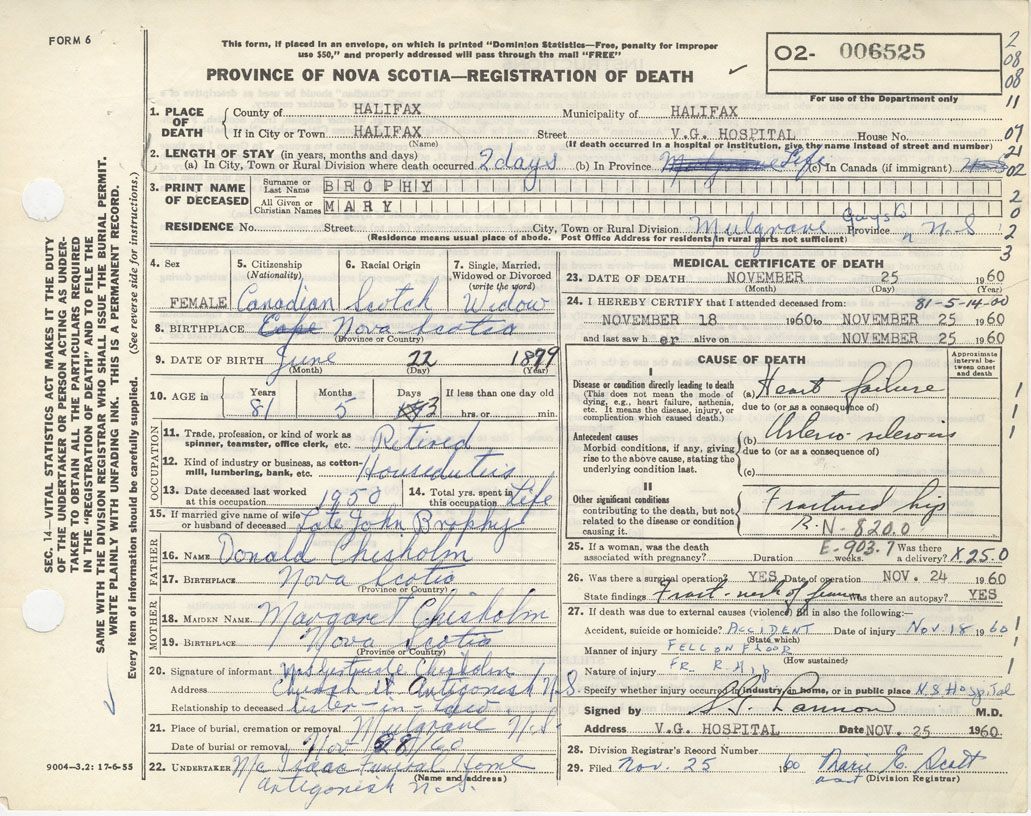 FORM 6
This form, if placed in an envelope, on which is printed "Dominion Statistics—Free, penalty for improper
use $50," and properly addressed will pass through the mail "FREE"
PROVINCE OF NOVA SCOTIA—REGISTRATION OF DEATH
02- 006525
For use of the Department only
2
08
08
11
07
21
02
2
0
2
3
SEC. 14—VITAL STATISTICS ACT MAKES IT THE DUTY
OF THE UNDERTAKER OR PERSON ACTING AS UNDER-
TAKER TO OBTAIN ALL THE PARTICULARS REQUIRED
IN THE "REGISTRATION OF DEATH" AND TO FILE THE
SAME WITH THE DIVISION REGISTRAR WHO SHALL ISSUE THE BURIAL PERMIT.
WRITE PLAINLY WITH UNFADING INK. THIS IS A PERMANENT RECORD.
Every item of information should be carefully supplied. (See reverse side for instructions.)
1. PLACE OF DEATH
County of HALIFAX Municipality of HALIFAX
If in City or Town HALIFAX Street V.G. HOSPITAL House No.
(Name) (If death occurred in a hospital or institution, give the name instead of street and number)
2. LENGTH OF STAY (in years, months and days)
(a) In City, Town or Rural Division where death occurred 2 days (b) In Province Life (c) In Canada (if immigrant)
3. PRINT NAME OF DECEASED
Surname or Last Name BROPHY
All Given or Christian Names MARY
RESIDENCE No. Street City, Town or Rural Division Mulgrave Guysb Province N.S
(Residence means usual place of abode. Post Office Address for residents in rural parts not sufficient)
4. Sex
FEMALE
5. Citizenship
(Nationality)
Canadian
6. Racial Origin
Scotch
7. Single, Married, Widowed or Divorced
(write the word)
Widow
8. BIRTHPLACE Nova Scotia
(Province or Country)
9. DATE OF BIRTH June 22 1879
(Month) (Day) (Year)
10. AGE in Years Months Days If less than one day
81 5 3 hrs. or min.
OCCUPATION
11. Trade, profession, or kind of work as spinner, teamster, office clerk, etc. Retired
12. Kind of industry or business, as cotton-mill, lumbering, bank, etc. Houseduties
13. Date deceased last worked at this occupation 1950
14. Total yrs. spent in this occupation Life
15. If married give name of wife or husband of deceased Late John Brophy
FATHER
16. NAME Donald Chisholm
17. BIRTHPLACE Nova Scotia
(Province or Country)
MOTHER
18. MAIDEN NAME Margaret Chisholm
19. BIRTHPLACE Nova Scotia
(Province or Country)
20. Signature of informant Mrs Gertrude Chisholm
Address Church St Antigonish N.S.
Relationship to deceased Sister-in-law
21. Place of burial, cremation or removal Mulgrave N.S
Date of burial or removal Nov 28/60
22. UNDERTAKER Mc Isaac Funeral Home
(Name and address)
Antigonish N.S.
9004—3.2: 17-6-55
MEDICAL CERTIFICATE OF DEATH
23. DATE OF DEATH NOVEMBER 25 1960
(Month) (Day) (Year)
24. I HEREBY CERTIFY that I attended deceased from: 81-5-14-00
NOVEMBER 18 1960 to NOVEMBER 25 1960
and last saw her alive on NOVEMBER 25 1960
CAUSE OF DEATH
Approximate interval between onset and death
I
Disease or condition directly leading to death
(This does not mean the mode of dying, e.g., heart failure, asthenia, etc. It means the disease, injury, or complication which caused death.)
(a) Heart failure
due to (or as a consequence of)
Antecedent causes
Morbid conditions, if any, giving rise to the above cause, stating the underlying condition last.
(b) Arterio-sclerosis
due to (or as a consequence of)
(c)
II
Other significant conditions
contributing to the death, but not related to the disease or condition causing it.
Fractured hip
R. N-820.0
E-903.7
25. If a woman, was the death associated with pregnancy? Duration weeks. Was there a delivery? X 25.0
26. Was there a surgical operation? YES Date of operation NOV. 24 1960
State findings Fract-neck of femur Was there an autopsy? YES
27. If death was due to external causes (violence) fill in also the following:—
Accident, suicide or homicide? ACCIDENT Date of injury Nov 18 1960
(State which)
Manner of injury FELL ON FLOOR
(How sustained)
Nature of injury FR. R. Hip
Specify whether injury occurred in industry, in home, or in public place N.S Hospital
Signed by Lannon M.D.
Address V.G. HOSPITAL Date NOV. 25 1960
28. Division Registrar's Record Number
29. Filed Nov. 25 1960 Marie E. Scott
asst (Division Registrar)